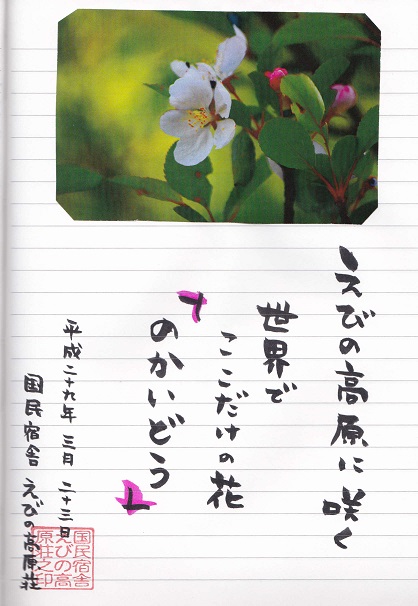 えびの高原に咲く
世界で
ここだけの花
「のかいどう」
平成二十九年 三月 二十三日
国民宿舎 えびの高原荘
国民宿舎
えびの高
原荘之印